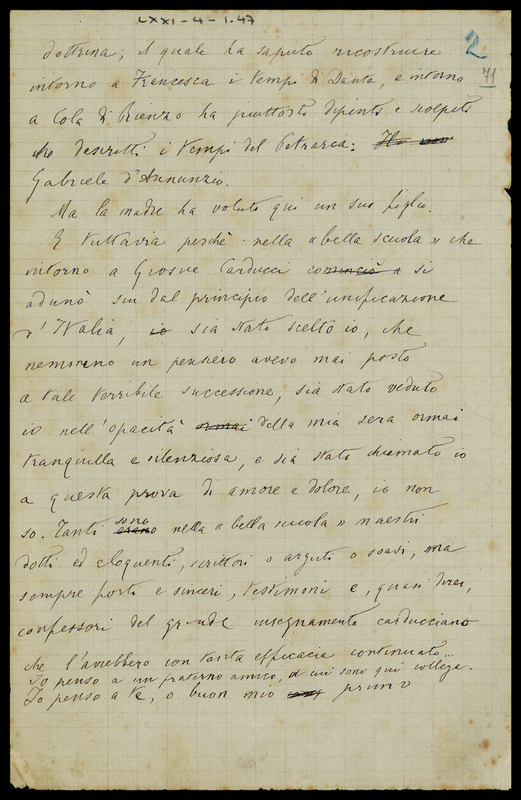 LXXI-4-1.47
2
71
dottrina; il quale ha saputo ricostruire
intorno a Francesca i tempi di Dante, e intorno
a Cola di Rienzo ha piuttosto dipinti e scolpiti
che descritti i tempi del Petrarca: Ho non
Gabriele d'Annunzio.
Ma la madre ha voluto qui un suo figlio.
E tuttavia perchè nella « bella scuola » che
intorno a Giosue Carducci cominciò a si
adunò sin dal principio dell'unificazione
d'Italia, io sia stato scelto io, che
nemmeno un pensiero avevo mai posto
a tale terribile successione, sia stato veduto
io nell'opacità ormai della mia sera ormai
tranquilla e silenziosa, e sia stato chiamato io
a questa prova di amore e dolore, io non
so. Tanti erano sono nella « bella scuola » maestri
dotti ed eloquenti, scrittori o arguti o soavi, ma
sempre forti e sinceri, testimoni e, quasi direi,
confessori del grande insegnamento carducciano
che l'avrebbero con tanta efficacia continuato...
Io penso a un fraterno amico, di cui sono qui collega.
Io penso a te, o buon mio primo